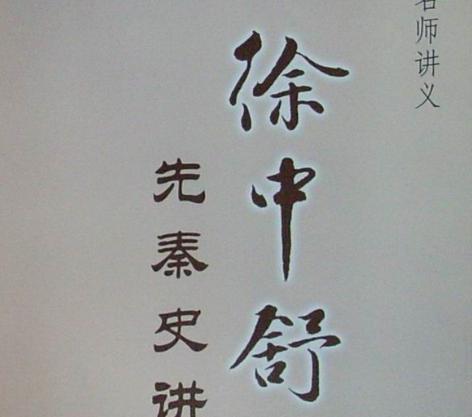 名师讲义
徐中舒
先秦史讲